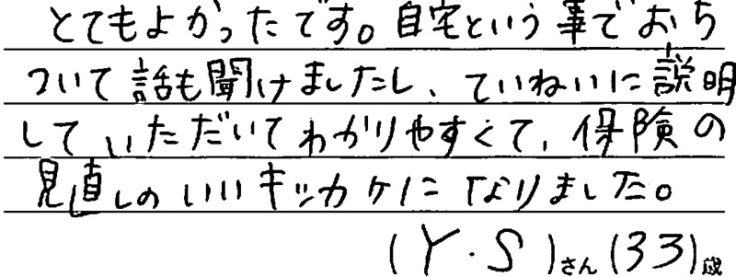 とてもよかったです。自宅という事でおち
ついて話も聞けましたし、ていねいに説明
していただいてわかりやすくて、保険の
見直しのいいキッカケになりました。
(Y・S)さん(33)歳